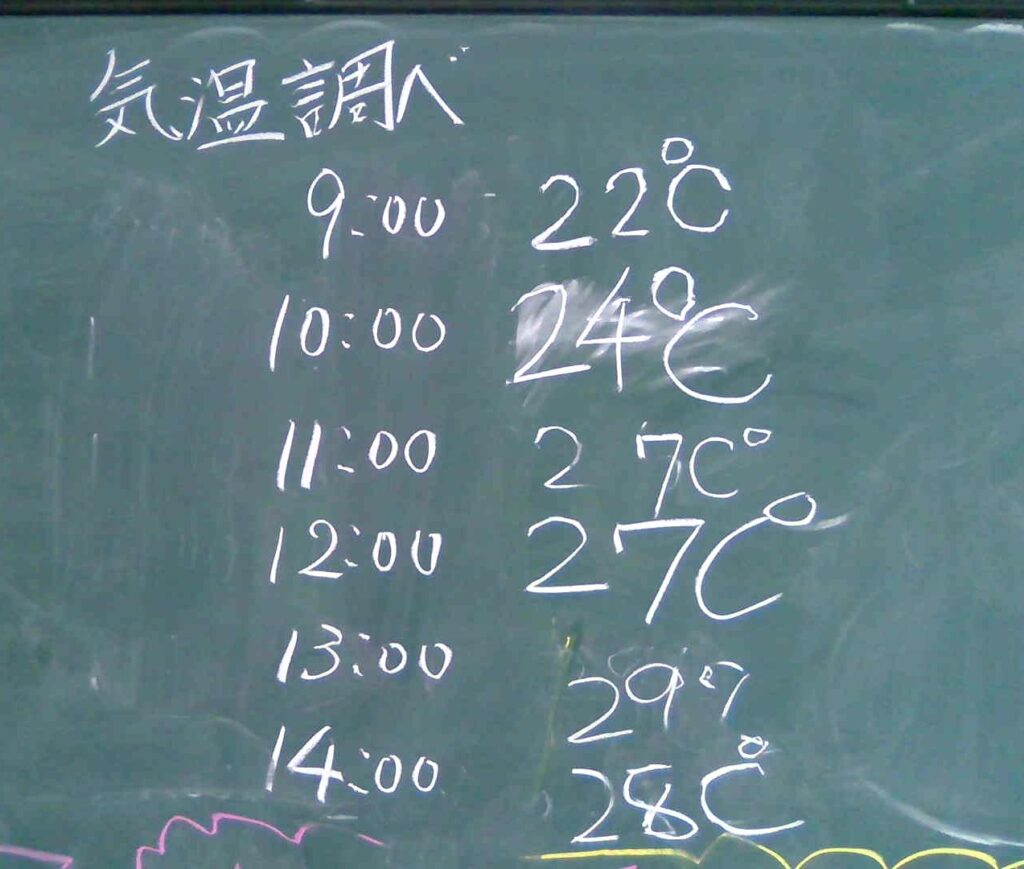 気温調べ
9:00 22℃
10:00 24℃
11:00 27C°
12:00 27C°
13:00 29
14:00 28C°